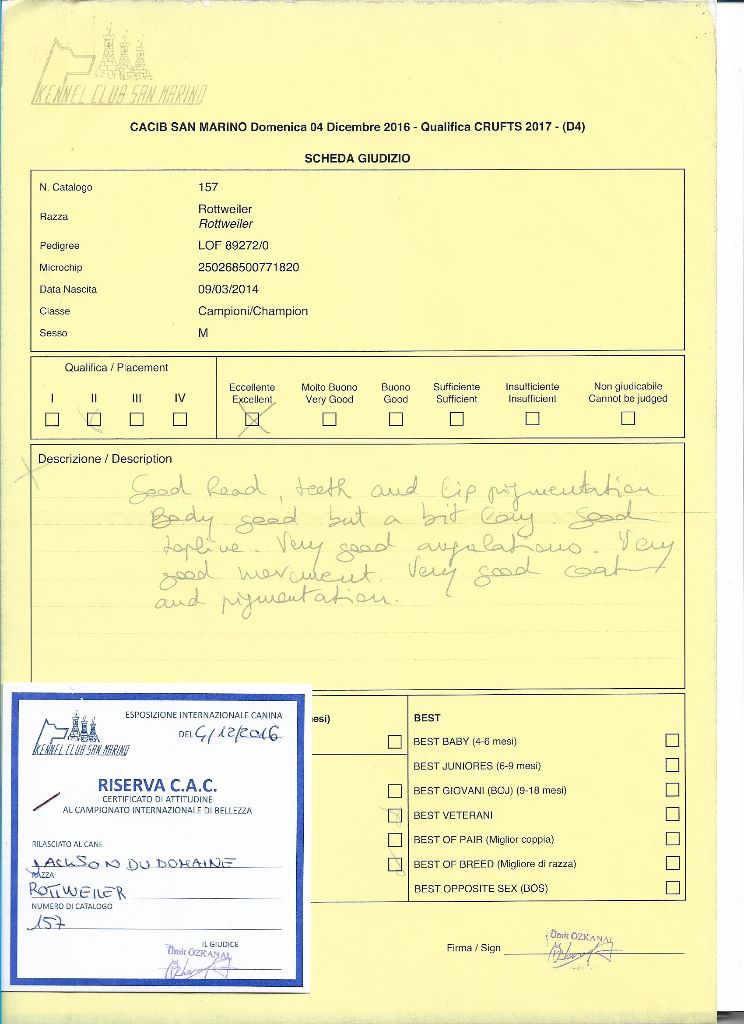 KENNEL CLUB SAN MARINO
CACIB SAN MARINO Domenica 04 Dicembre 2016 - Qualifica CRUFTS 2017 - (D4)
SCHEDA GIUDIZIO
N. Catalogo 157
Razza Rottweiler
Rottweiler
Pedigree LOF 89272/0
Microchip 250268500771820
Data Nascita 09/03/2014
Classe Campioni/Champion
Sesso M
Qualifica / Placement
I II III IV
Eccellente Molto Buono Buono Sufficiente Insufficiente Non giudicabile
Excellent Very Good Good Sufficient Insufficient Cannot be judged
Descrizione / Description
Good head, teeth and lip pigmentation
Body good but a bit long. Good
topline. Very good angulations. Very
good movement. Very good coat
and pigmentation.
esi)
BEST
BEST BABY (4-6 mesi)
BEST JUNIORES (6-9 mesi)
BEST GIOVANI (BOJ) (9-18 mesi)
BEST VETERANI
BEST OF PAIR (Miglior coppia)
BEST OF BREED (Migliore di razza)
BEST OPPOSITE SEX (BOS)
Firma / Sign
Ümit ÖZKANAL
ESPOSIZIONE INTERNAZIONALE CANINA
DEL 4/12/2016
KENNEL CLUB SAN MARINO
RISERVA C.A.C.
CERTIFICATO DI ATTITUDINE
AL CAMPIONATO INTERNAZIONALE DI BELLEZZA
RILASCIATO AL CANE
JACKSON DU DOMAINE
RAZZA
ROTTWEILER
NUMERO DI CATALOGO
157
IL GIUDICE
Ümit ÖZKANAL